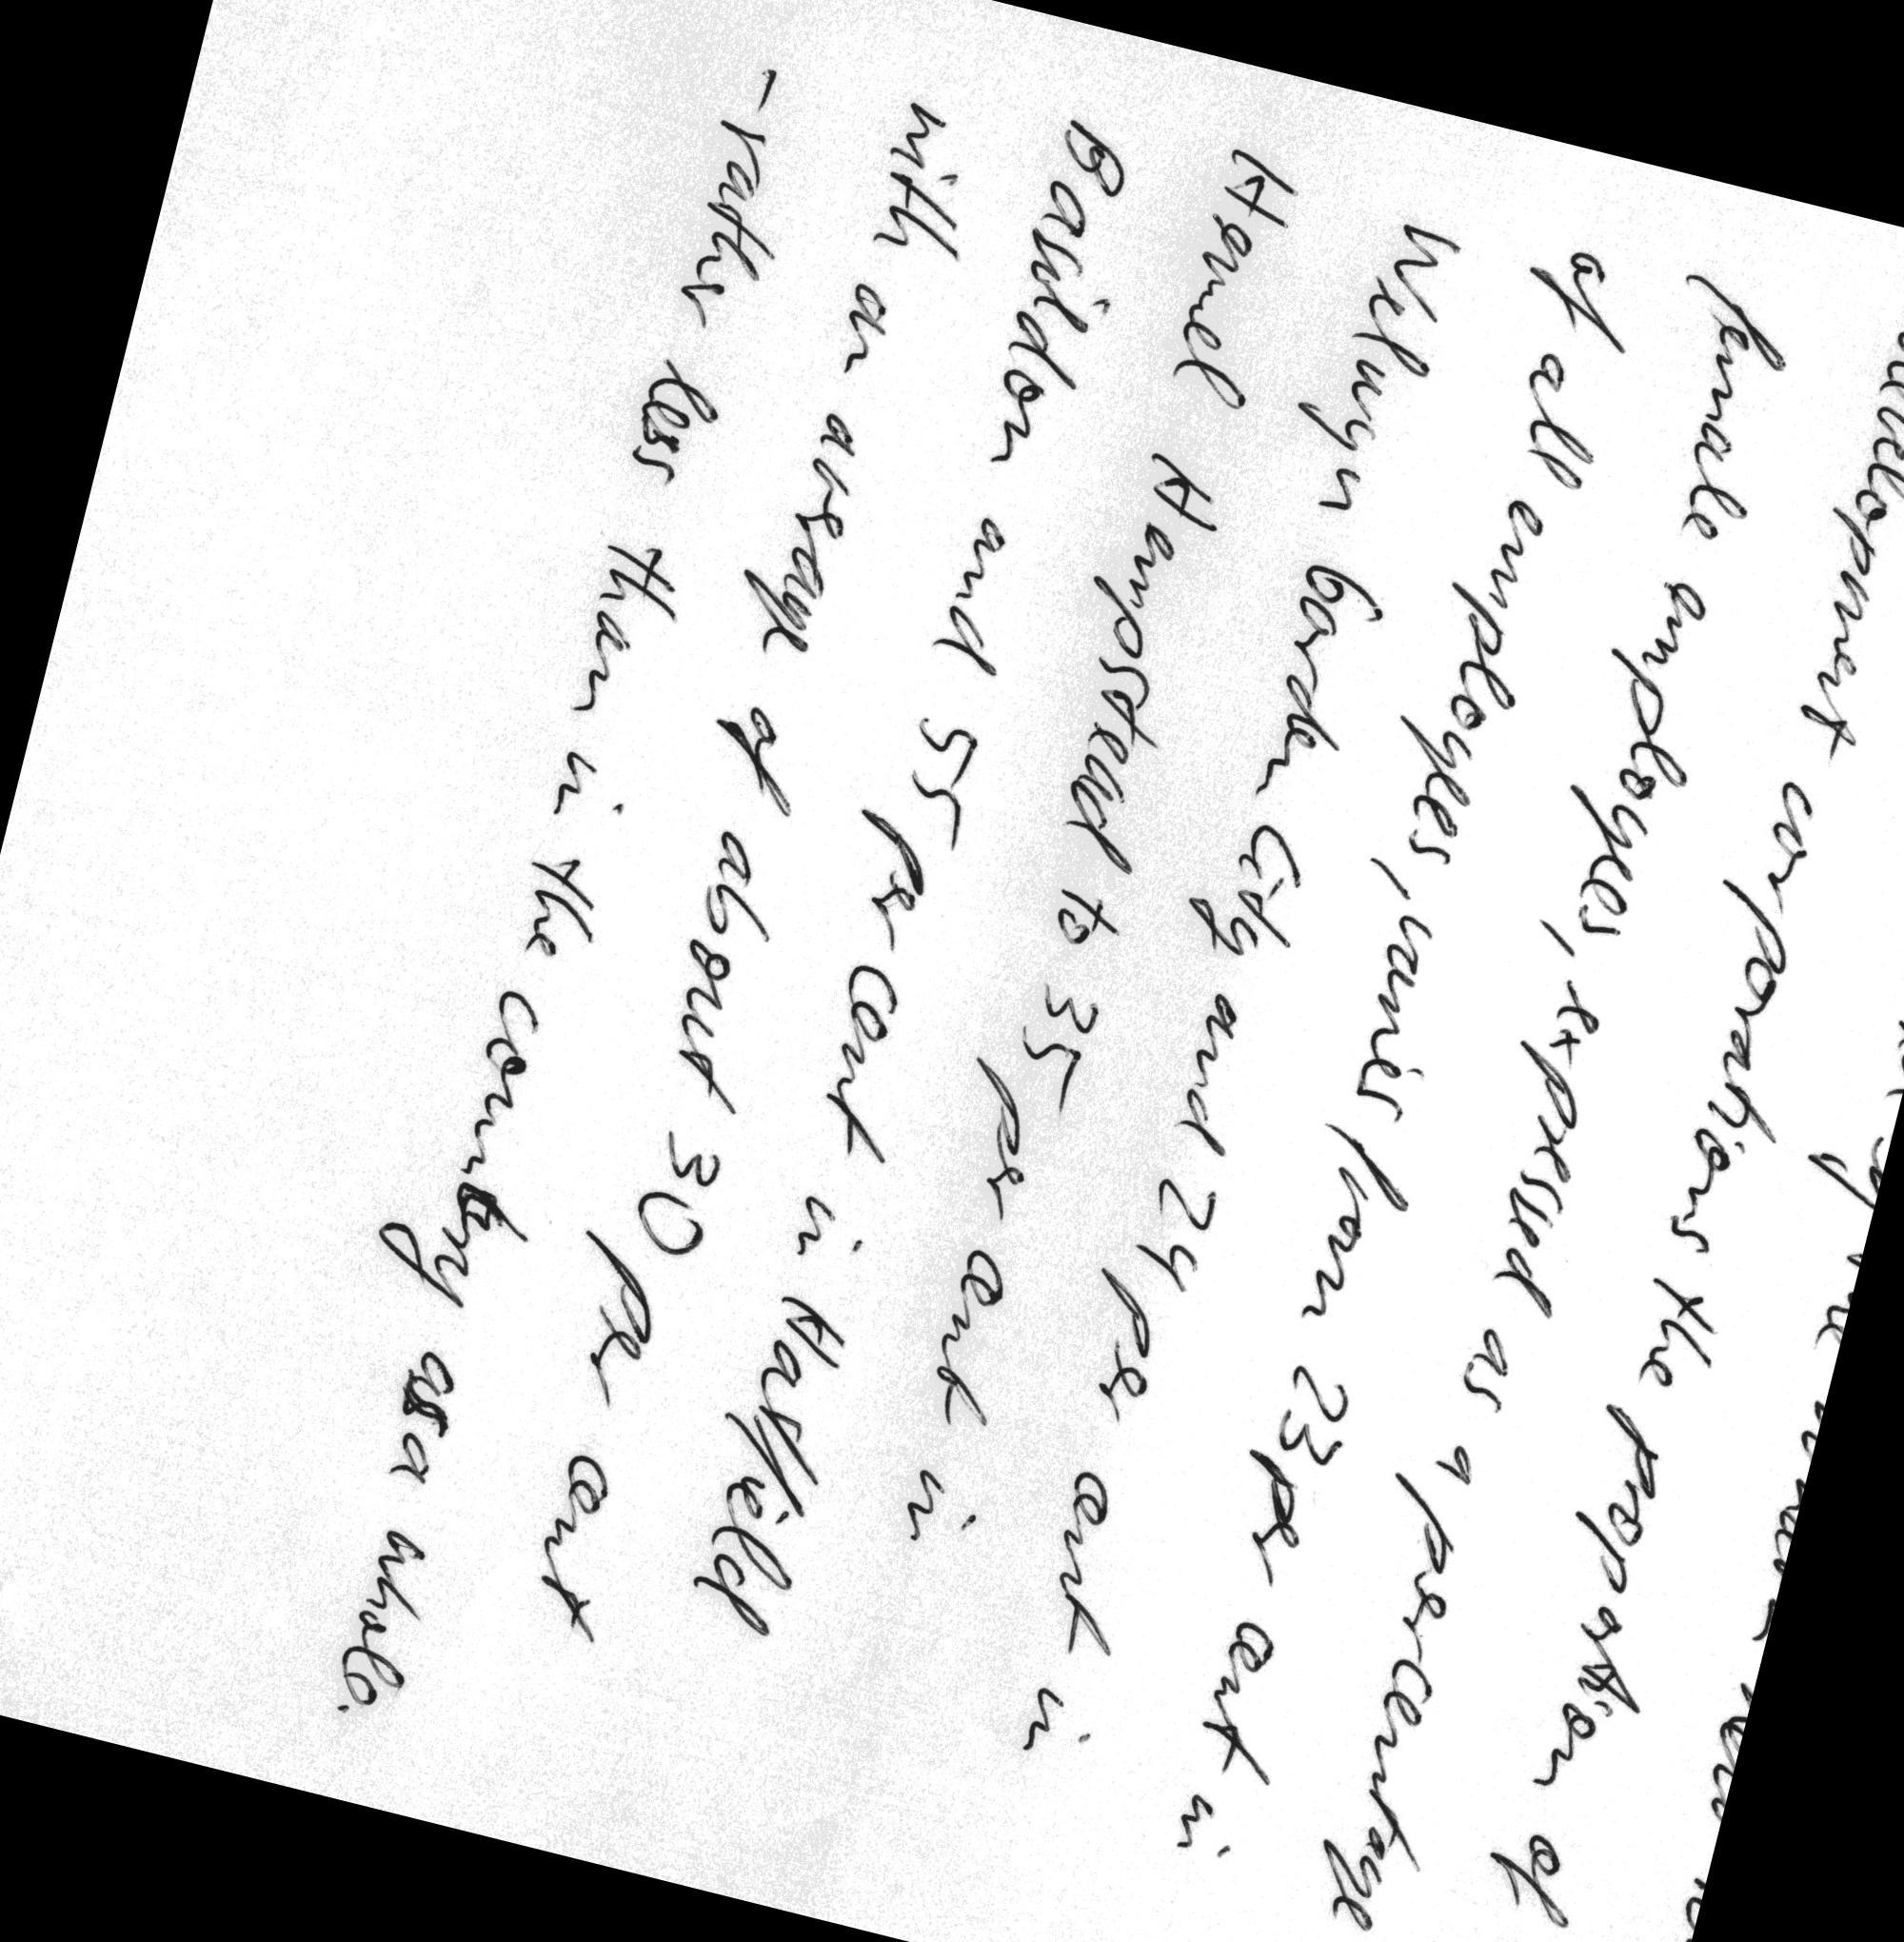 development corporations the proportion of
female employees, expressed as a percentage
of all employees, varies from 23 per cent in
Welwyn Garden City and 24 per cent in
Hemel Hempstead to 35 per cent in
Basildon and 55 per cent in Hatfield
with an average of about 30 per cent
- rather less than in the country as a whole.